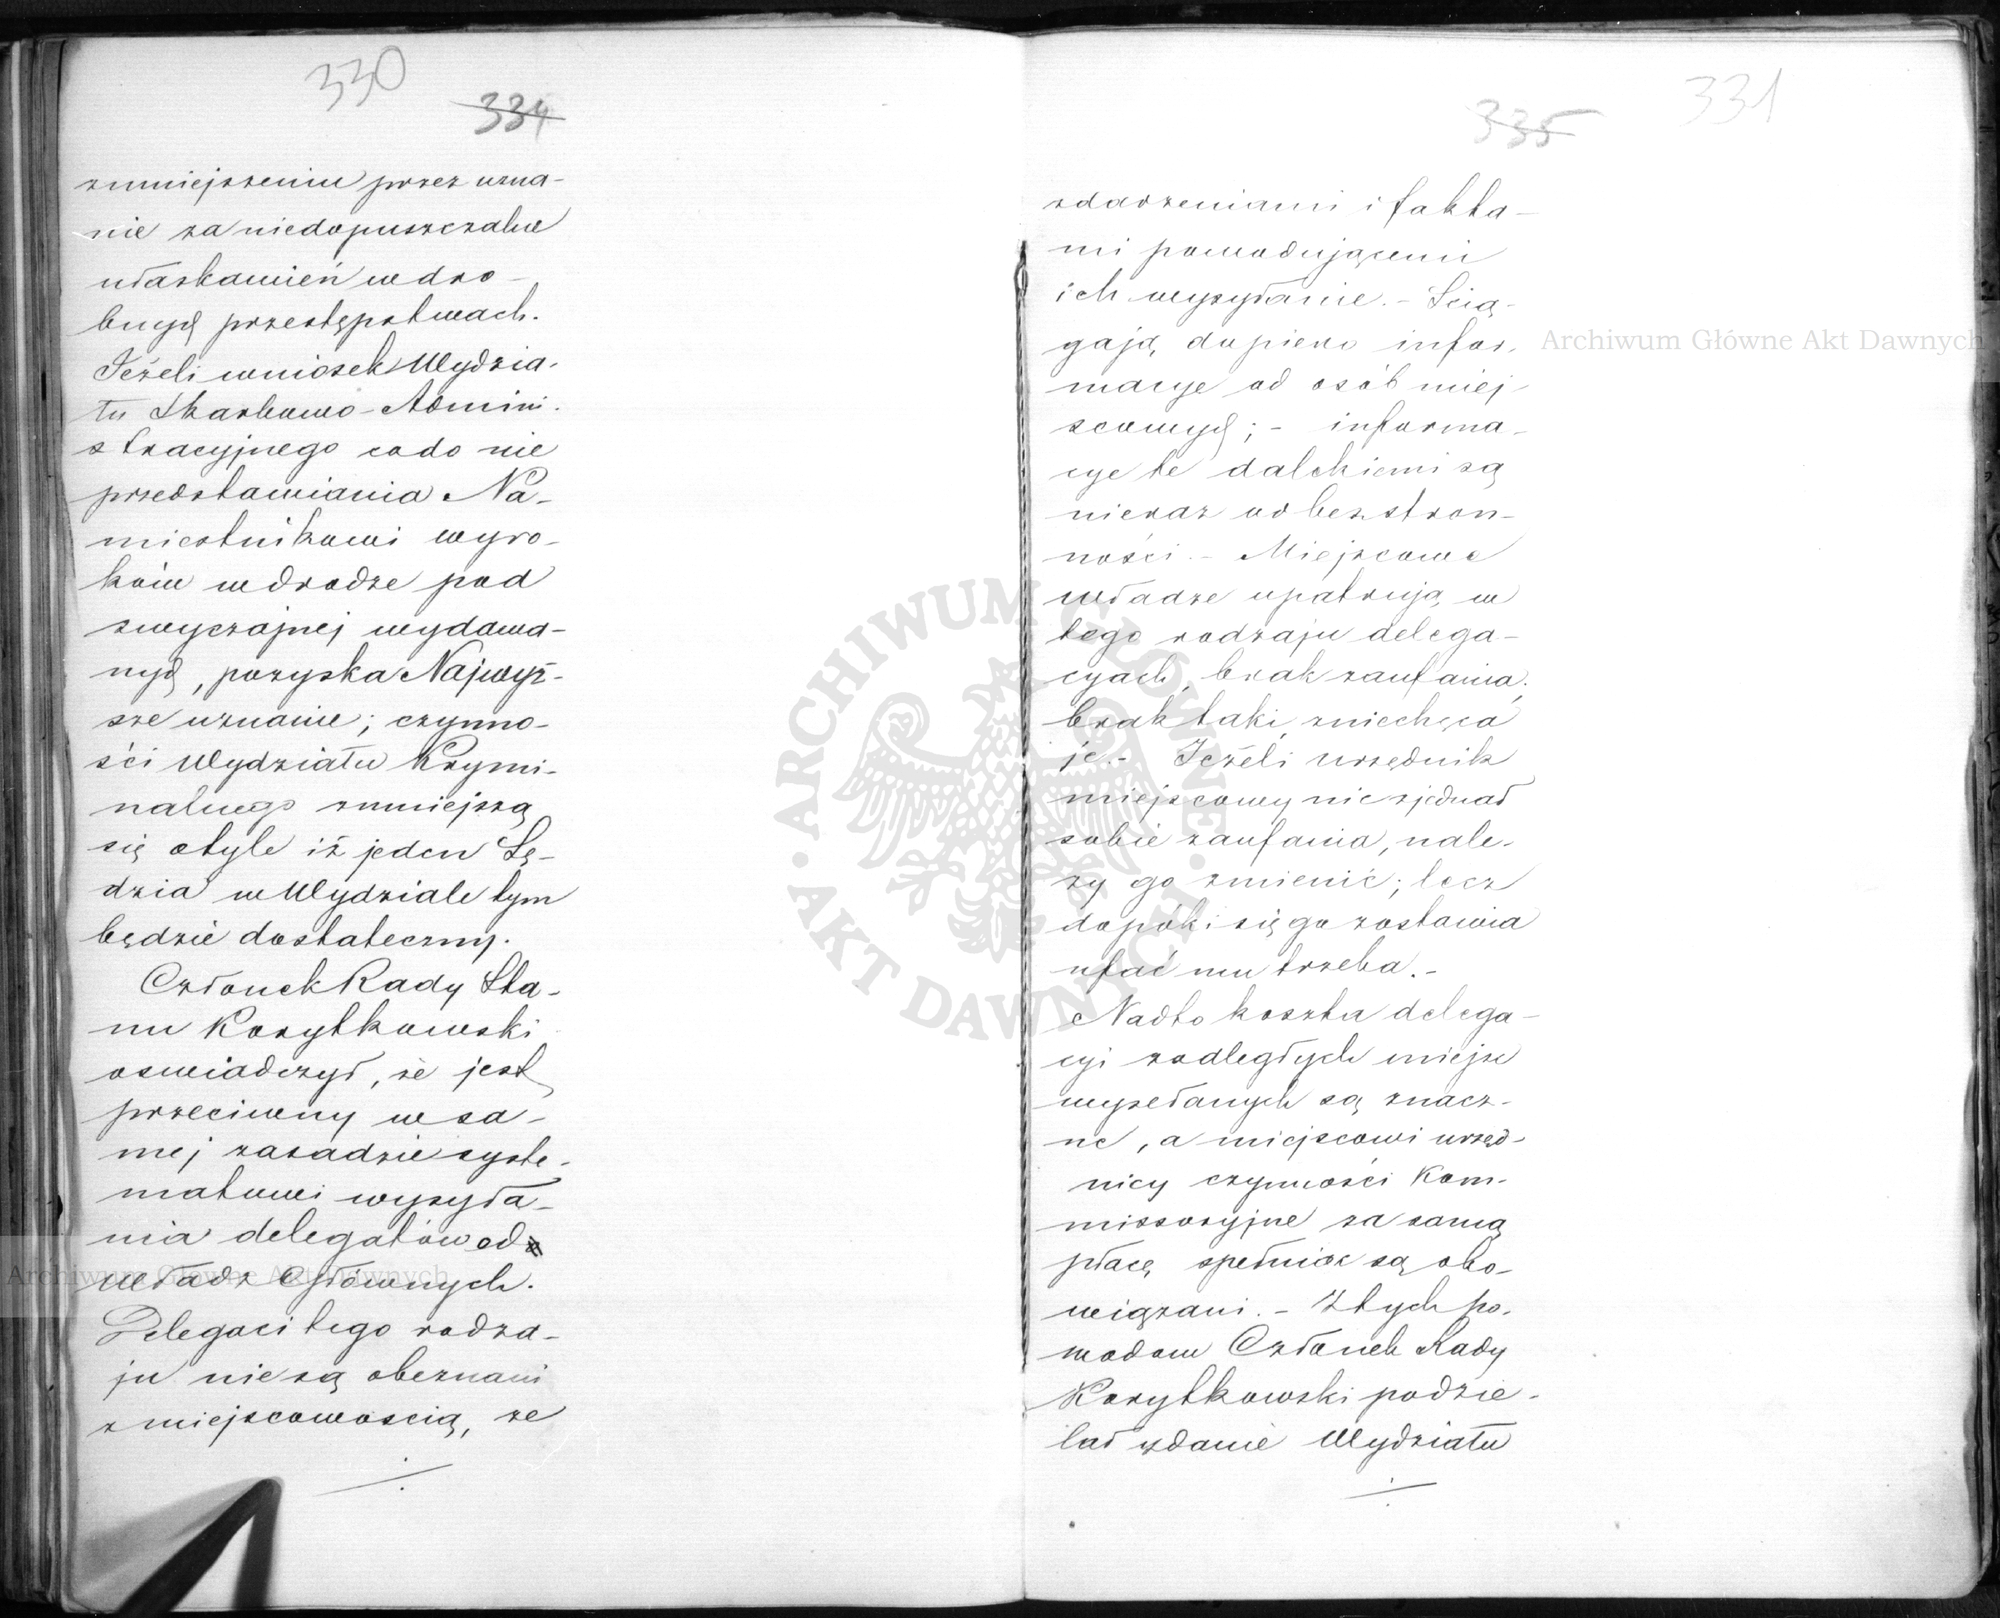 330
334
zmniejszeniu przez uzna-
nie za niedopuszczalne
ułaskawień w dro-
bnych przestępstwach.
Jeżeli wniosek Wydzia-
łu Skarbowo-Admini-
stracyjnego co do nie
przedstawiania Na-
miestnikowi wyro-
ków w drodze pod
zwyczajnej wydawa-
nych, pozyska Najwyż-
sze uznanie; czynno-
ści Wydziału Krymi-
nalnego zmniejszą
się o tyle iż jeden Sę-
dzia w Wydziale tym
będzie dostateczny.
Członek Rady Sta-
nu Korytkowski
oswiadczył, że jest
przeciwny w sa-
mej zasadzie syste-
matowi wysyła-
nia delegatów od
władz Głównych.
Delegaci tego rodza-
ju nie są obeznani
z miejscowoscią, ze
331
335
zdarzeniami i fakta-
mi powodującemi
ich wysyłanie. - Scią-
gają dopiero infor-
macye od osób miej-
scowych; - informa-
cye te dalekiemi są
nieraz od bezstron-
ności. - Miejscowe
władze upatrują w
tego rodzaju delega-
cyach brak zaufania;
brak taki zniechęca
je. - Jeżeli urzędnik
miejscowy nie zjednał
sobie zaufania, nale-
ży go zmienić; lecz
dopóki się go zostawia
ufać mu trzeba. -
Nadto koszta delega-
cyi z odległych miejsc
wysełanych są znacz-
ne, a miejscowi urzęd-
nicy czynności kom-
missoryjne za samą
płacę spełniać są obo-
wiązani. - Z tych po-
wodow Członek Rady
Korytkowski podzie-
lał zdanie Wydziału
Archiwum Główne Akt Dawnych
Archiwum Główne Akt Dawnych
ARCHIWUM GŁÓWNE • AKT DAWNYCH •